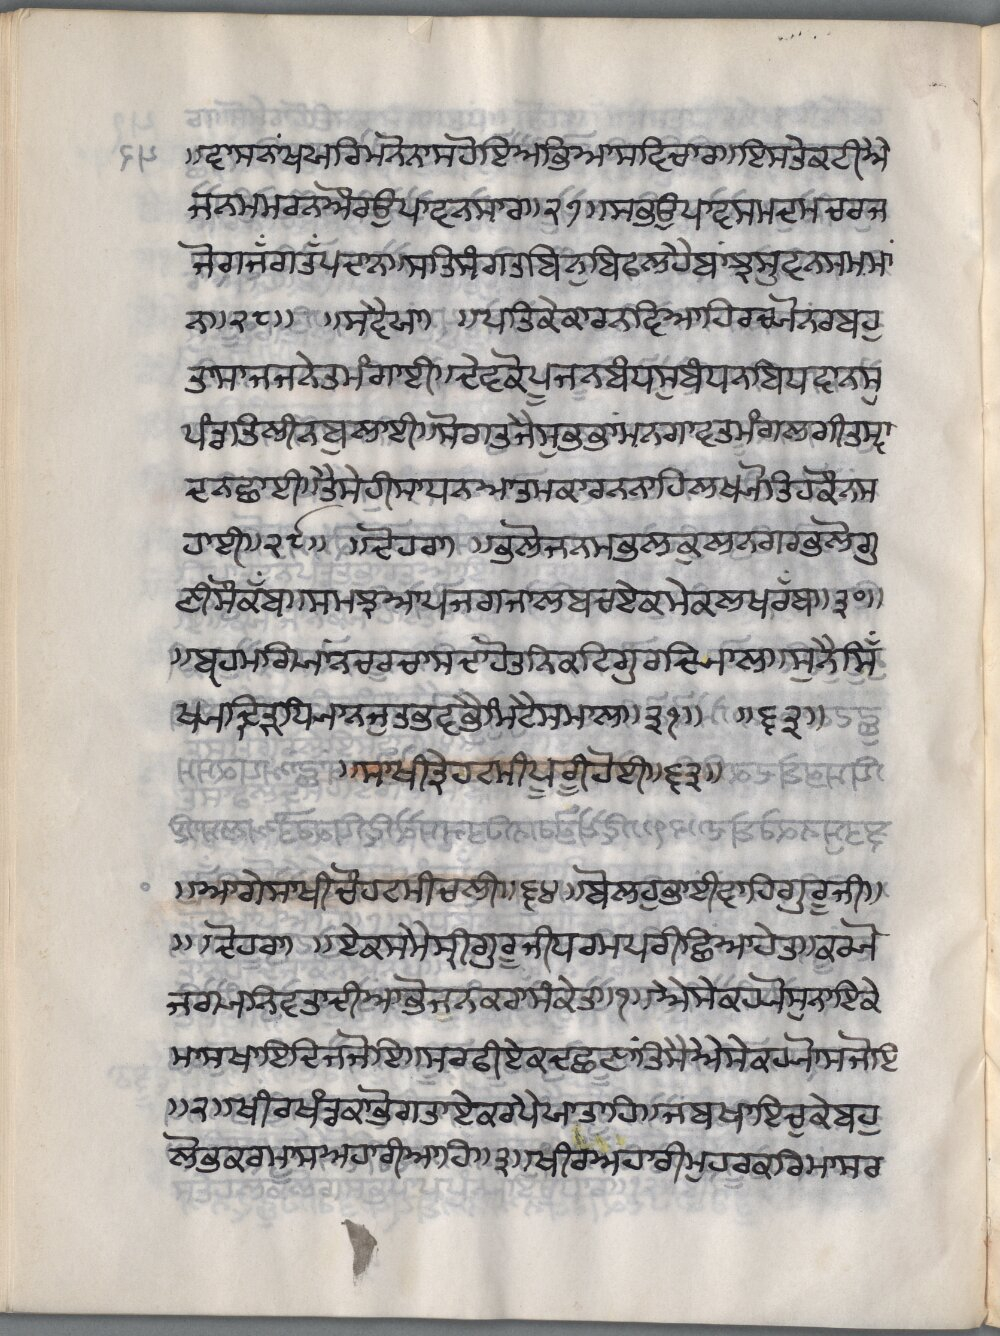 ॥ਵਾਸਨਾਂਖਯਰਿਮਨੋਨਾਸਹੋਇਅਭਿਆਸਵਿਚਾਰ॥ਇਸਤੇਕਟੀਐ
ਜਨਮਮਰਨਔਰਉਪਾਵਨਸਾਰ॥੨੭॥ਸਭਉਪਾਵਸਮਦਮਚਰਜ
ਜੋਗਜੱਗਤੱਪਦਾਨ॥ਸਤਿਸੰਗਤਬਿਨੁਬਿਫਲਹੈਬਾਂਝਸੁਵਨਸਮਮਾਂ
ਨ॥੨੮॥ ॥ਸਵੈਯਾ॥ ॥ਪਤਿਕੇਕਾਰਨਵਿਆਹਿਰਚਯੋਨਰਬਹੁ
ਤਾਸਾਜਜਨੇਤਮੰਗਾਈ॥ਦੇਵਕੋਪੂਜਨਬੰਧਸੁਬੰਧਨਬਿਧਵਾਨਸੁ
ਪੰਡਤਿਲੀਨਬੁਲਾਈ॥ਸੋਗਤੁਜੈਸੁਭਭਾਂਮਨਗਾਵਤਮੰਗਲਗੀਤਸੁਾ
ਦਨਛਾਈ॥ਤੈਸੇਹੀਸਾਧਨਆਤਮਕਾਰਨਨਾਹਿਲਖਯੋਤਿਹਕੌਨਸ
ਹਾਈ॥੨੯॥ ॥ਦੋਹਰਾ॥ ॥ਭੁਲੋਜਨਮਭੁਲਕੁਲਨਗਰਭੁਲੋਗੁ
ਣੀਸੌਕੱਬ॥ਸਮਝਆਪਜਗਜਾਲਬਚਏਕਮੇਕਲਖਰੱਬ॥੩੦॥
॥ਬ੍ਰਹਮਗਿਯਾਂਨਚੁਰਚਾਸਦਾਂਹੋਤਨਿਕਟਿਗੁਰਦਿਯਾਲ॥ਸੁਨੈਸਿੱ
ਖਯਾਦ੍ਰਿੜ੍ਹਧਿਯਾਨਜੁਤਭਵਭੈਮਿਟੈਸਮਾਲ॥੩੧॥ ॥੬੩॥
॥ਸਾਖੀਤ੍ਰੇਹਟਮੀਪੂਰੀਹੋਈ॥੬੩॥
॥ਆਗੇਸਾਖੀਚੌਹਟਮੀਚਲੀ॥੬੪॥ਬੋਲਹੁਭਾਈਵਾਹਿਗੁਰੂਜੀ॥
॥ ॥ਦੋਹਰਾ॥ ॥ਏਕਸਮੈਸ੍ਰੀਗੁਰੂਜੀਪਰਮਪਰੀਛਿਆਹੇਤ॥ਕੁਰਯੋ
ਜਗਯਨਿਵਤਾਦੀਆਭੋਜਨਕਰਾਸੰਕੇਤ॥੧॥ਐਸੇਕਹਯੋਸੁਨਾਇਕੇ
ਮਾਸਖਾਇਦਿਜਜੋਇ॥ਮੁਰਫੀਏਕਦਛਣਾਂਤਿਸੈਐਸੇਕਹਯੋਸਜੋਇ
॥੨॥ਖੀਰਖੰਡਕਾਭੋਗਤਾਏਕਰੁਪੈਯਾਤਾਹਿ॥ਜਬਖਾਇਚੁਕੇਬਹੁ
ਲੋਭਕਰਮਾਸਅਹਾਰੀਆਹਿ॥੩॥ਖੀਰਅਹਾਰੀਮੁਹਰਕਰਿਮਾਸਰ